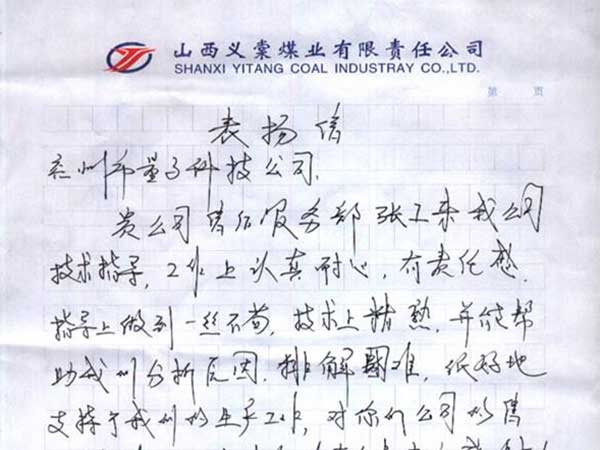 山西义棠煤业有限责任公司
SHANXI YITANG COAL INDUSTRAY CO.,LTD.
第 页
表扬信
兖州市量子科技公司.
贵公司售后服务部张工来我公司
技术指导,工作上认真耐心,有责任感,
指导上做到一丝不苟,技术上精熟,并能帮
助我们分析原因,排解困难,很好地
支持了我们的生产工作,对你们公司的售